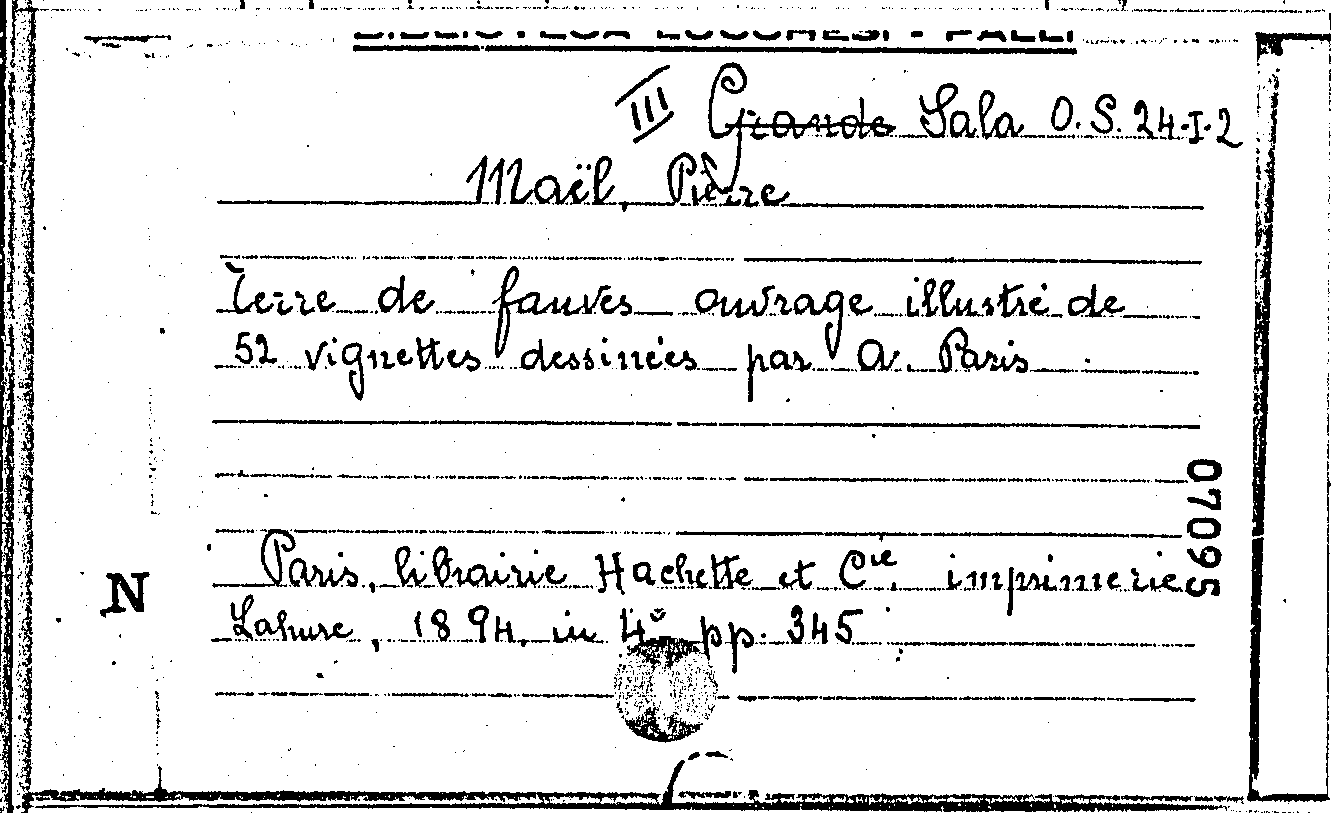 BIBLIOTECA LUCCHESI - PALLI
III Grande Sala O.S. 24.I.2
Maël, Pierre
Terre de fauves ouvrage illustré de
52 vignettes dessinées par A. Paris
07095
Paris, librairie Hachette et Cie, imprimerie
N
Lahure, 1894, in 4° pp. 345